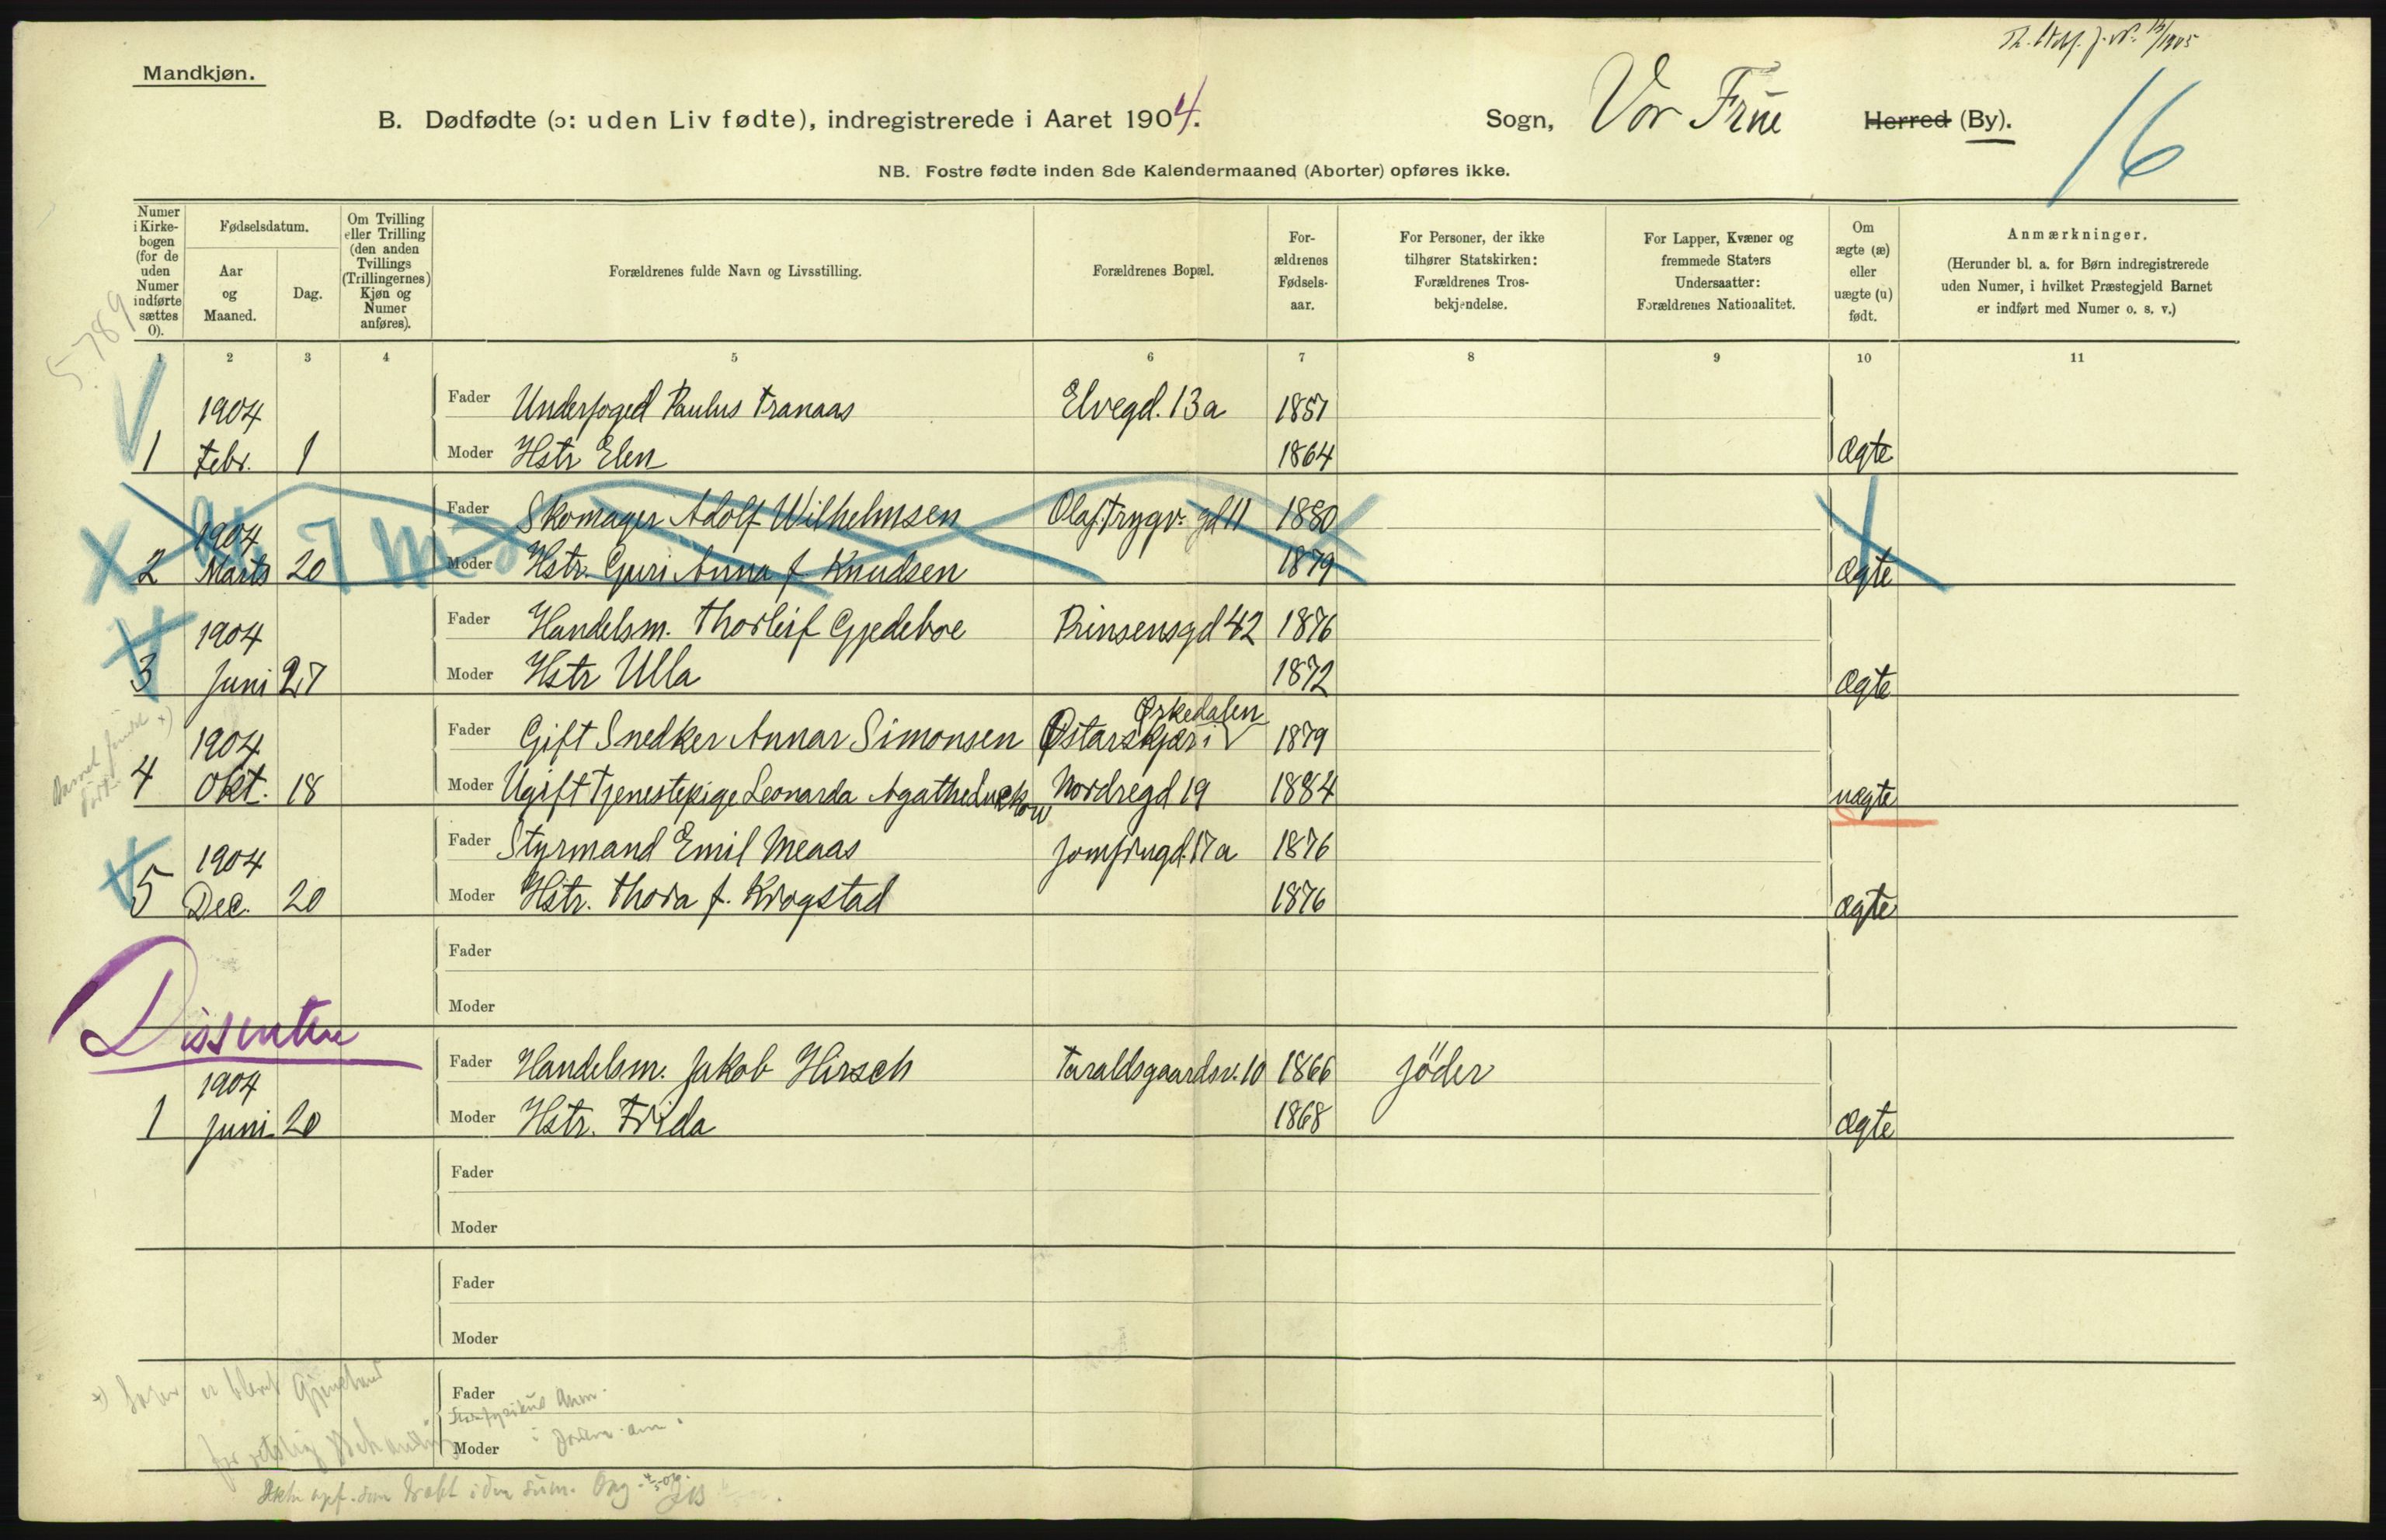 Mandkjøn.
B. Dødfødte (ɔ: uden Liv fødte), indregistrerede i Aaret 1904. Sogn, Vor Frue Herred (By).
16
NB. Fostre fødte inden 8de Kalendermaaned (Aborter) opføres ikke.
Numer i Kirke-bogen (for de uden Numer indførte sættes 0).
Fødselsdatum.
Aar og Maaned.
Dag.
Om Tvilling eller Trilling (den anden Tvillings (Trillingernes) Kjøn og Numer anføres).
Forældrenes fulde Navn og Livsstilling.
Forældrenes Bopæl.
For-ældrenes Fødsels-aar.
For Personer, der ikke tilhører Statskirken: Forældrenes Tros-bekjendelse.
For Lapper, Kvæner og fremmede Staters Undersaatter: Forældrenes Nationalitet.
Om ægte (æ) eller uægte (u) født.
Anmærkninger.
(Herunder bl. a. for Børn indregistrerede uden Numer, i hvilket Præstegjeld Barnet er indført med Numer o. s. v.)
5789
1 2 3 4 5 6 7 8 9 10 11
1904 Fader Underfoged Paulus Tranaas Elvegd. 13a 1857
1 Febr. 1 Moder Hstr Elen 1864 Ægte
1904 Fader Skomager Adolf Wilhelmsen Olaf Trygv. gd 11 1880
2 Marts 20 Moder Hstr. Guri Anna f Knudsen 1879 Ægte
1904 Fader Handelsm. Thorleif Gjedeboe Prinsensgd 42 1876
3 Juni 27 Moder Hstr Ulla 1872 Ægte
1904 Fader Gift Snedker Annar Simonsen Østarskjær i Ørkedalen 1879
4 Okt. 18 Moder Ugift Tjenestepige Leonarda Agathe Nordregd 19 1884 uægte
1904 Fader Styrmand Emil Meaas Jomfrugd. 17a 1876
5 Dec. 20 Moder Hstr. Thora f. Krogstad 1876 Ægte
Fader
Moder
Dissentere
1904 Fader Handelsm. Jakob Hirsch Taraldsgaardsv. 10 1866 Jöder
1 Juni 20 Moder Hstr. Frida 1868 Ægte
Fader
Moder
Fader
Moder
Fader
Moder